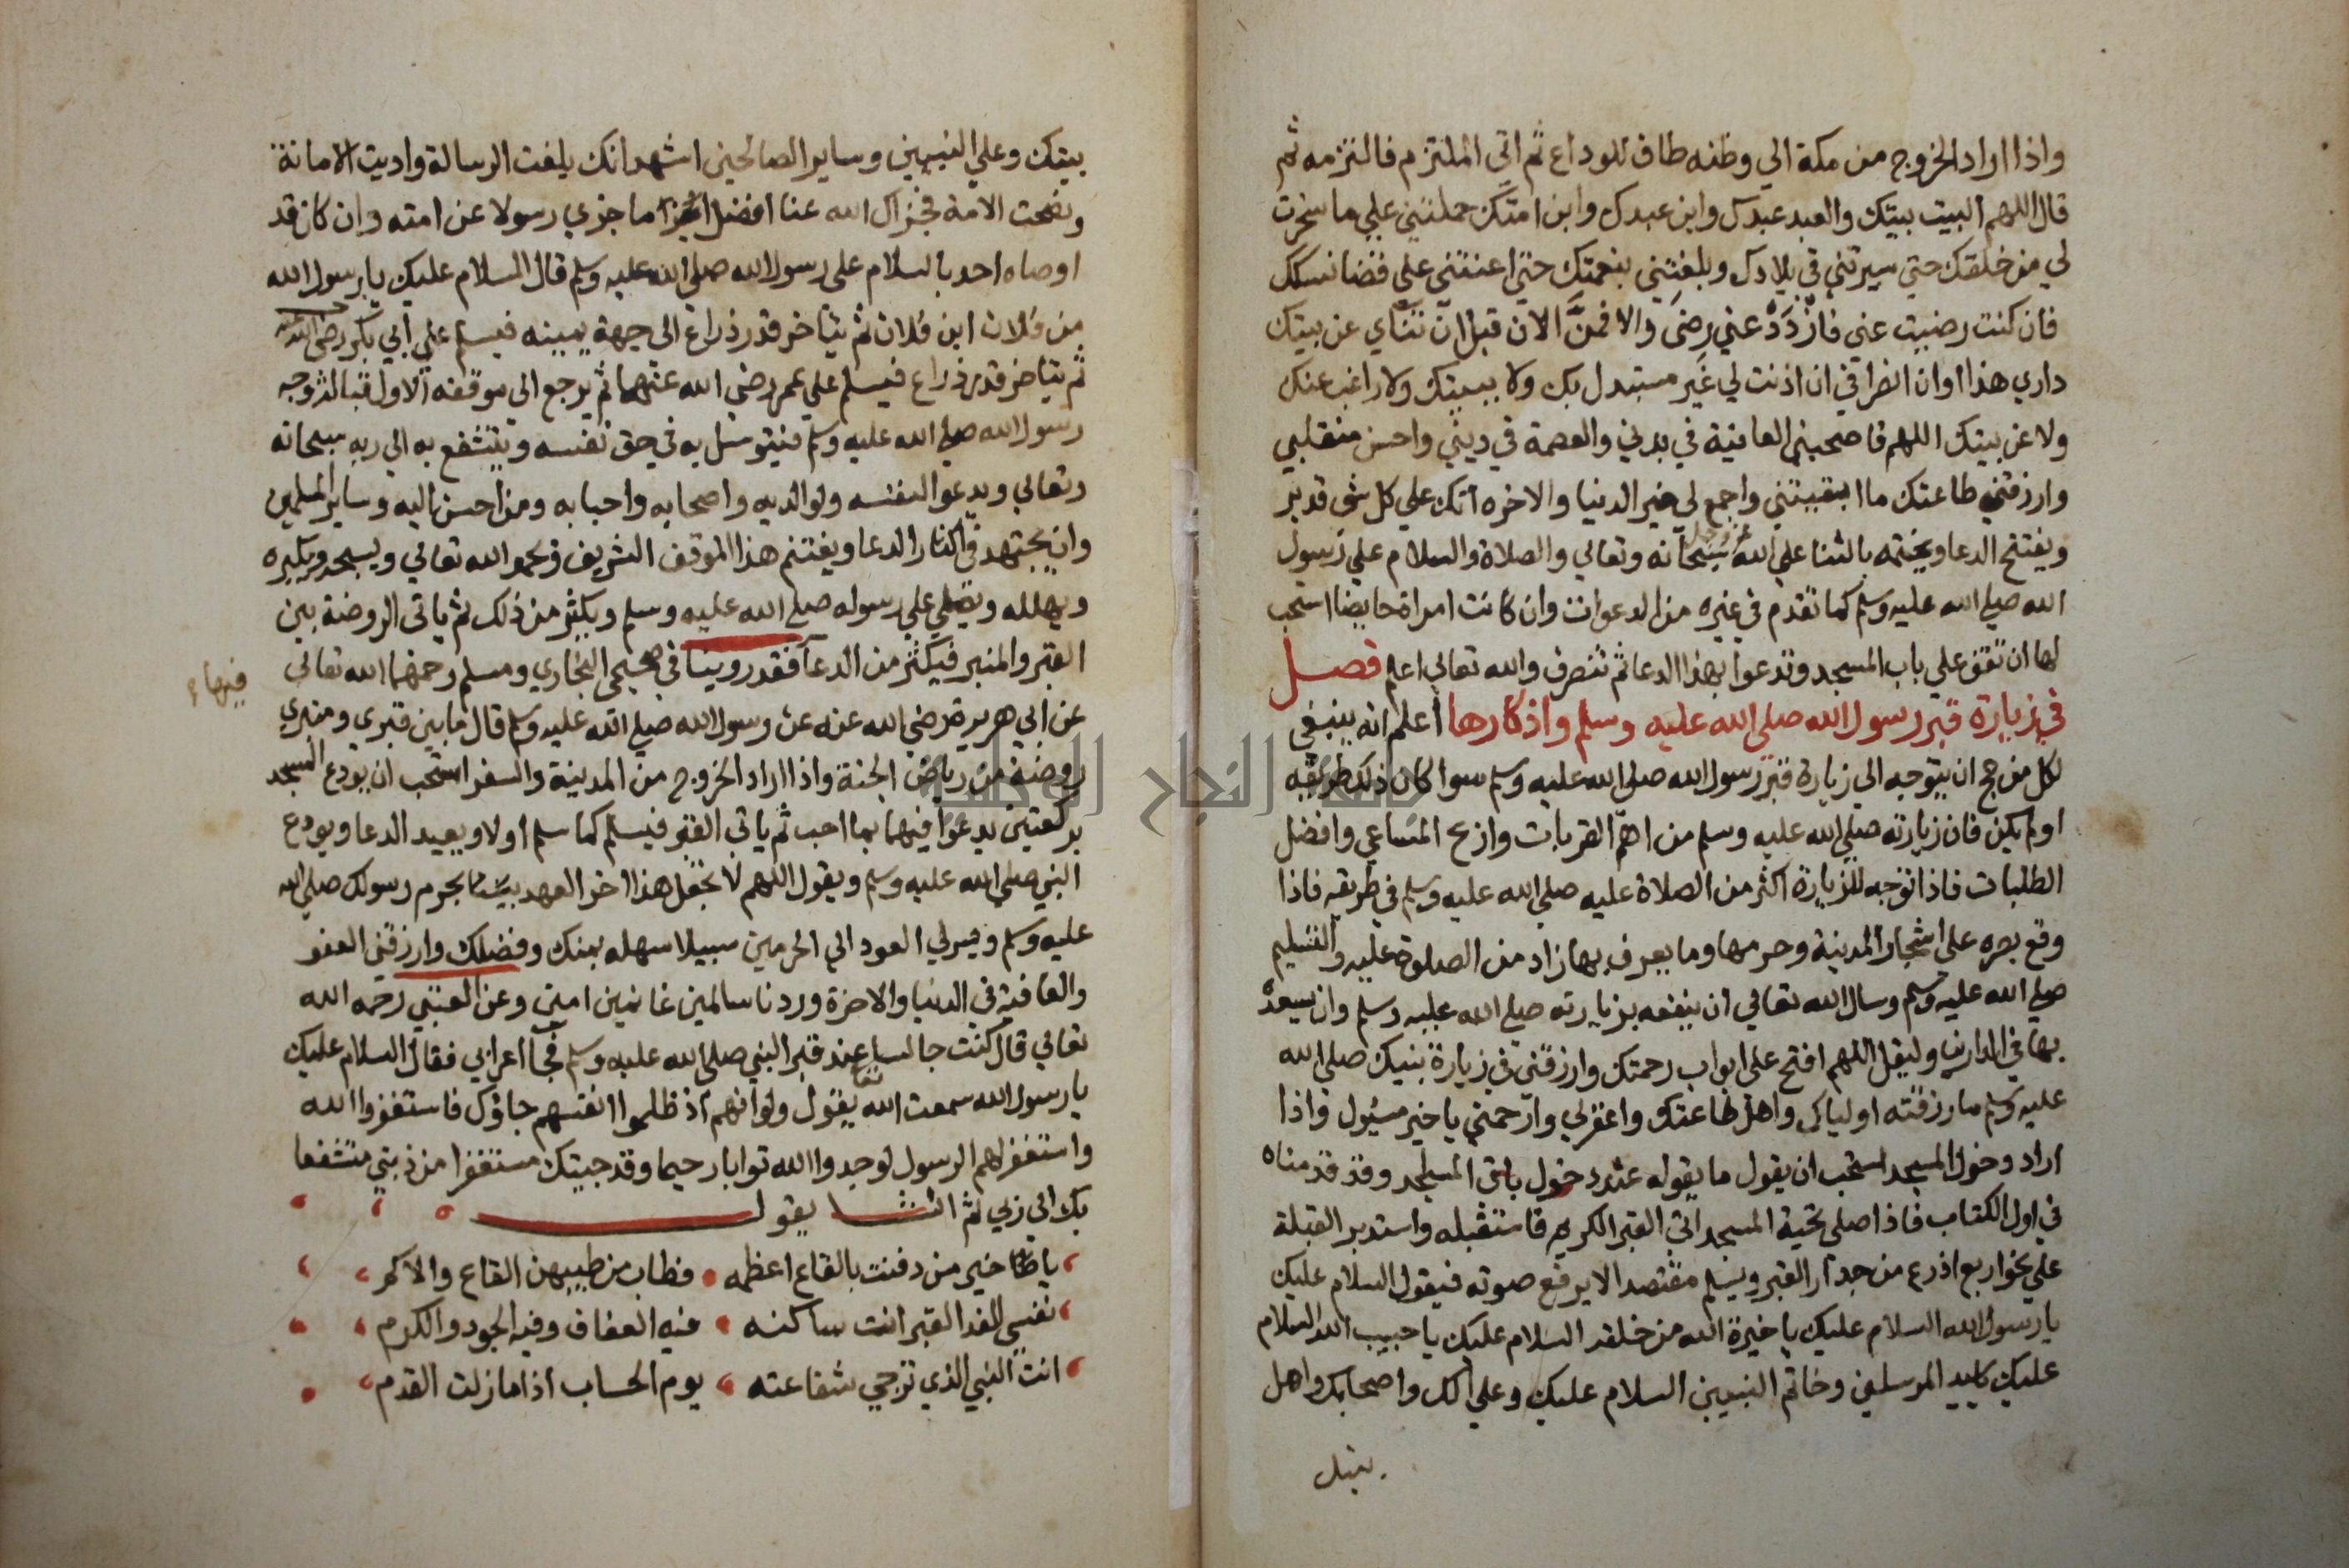 واذا اراد الخروج من مكة الي وطنه طاف للوداع ثم اتي الملتزم فالتزمه ثم
قال اللهم البيت بيتك والعبد عبدك وابن عبدك وابن امتك حملتني علي ما سخرت
لي من خلقك حتي سيرتني في بلادك وبلغتني بنعمتك حتي اعنتني علي قضا نسكك
فان كنت رضيت عني فازدد عني رضي والا فمن الان قبل ان تنآي عن بيتك
داري هذا اوان انصرافي ان اذنت لي غير مستبدل بك ولا ببيتك ولا راغب عنك
ولا عن بيتك اللهم فاصحبني العافية في بدني والعصمة في ديني واحسن منقلبي
وارزقني طاعتك ما ابقيتني واجمع لي خير الدنيا والاخره انك علي كل شي قدير
ويفتتح الدعا ويختمه بالثنا علي الله سبحانه وتعالي والصلاة والسلام علي رسول
الله صلي الله عليه وسلم كما تقدم في غيره من الدعوات وان كانت امراة حايضا استحب
لها ان تقف علي باب المسجد وتدعوا بهذا الدعا ثم تنصرف والله تعالي اعلم فصل
في زيارة قبر رسول الله صلي الله عليه وسلم واذكارها اعلم انه ينبغي
لكل من حج ان يتوجه الي زيارة قبر رسول الله صلي الله عليه وسلم سوا كان ذلك طريقه
اولم يكن فان زيارته صلي الله عليه وسلم من اهم القربات واربح المساعي وافضل
الطلبات فاذا توجه للزيارة اكثر من الصلاة عليه صلي الله عليه وسلم في طريقه فاذا
وقع بصره علي اشجار المدينة وحرمها وما يعرف بها زاد من الصلوة عليه والتسليم
صلي الله عليه وسلم وسال الله تعالي ان ينفعه بزيارته صلي الله عليه وسلم وان يسعده
بها في الدارين وليقل اللهم افتح علي ابواب رحمتك وارزقني في زيارة نبيك صلي الله
عليه وسلم ما رزقته اولياك واهل طاعتك واغفرلي وارحمني يا خير مسئول واذا
اراد دخول المسجد استحب ان يقول ما يقوله عند دخول باقي المساجد وقد قدمناه
في اول الكتاب فاذا صلي تحية المسجد اتي القبر الكريم فاستقبله واستدبر القبلة
علي نحو اربع اذرع من جدار القبر ويسلم مقتصدا لا يرفع صوته فيقول السلام عليك
يا رسول الله السلام عليك يا خيرة الله من خلقه السلام عليك يا حبيب الله السلام
عليك يا سيد المرسلين وخاتم النبيين السلام عليك وعلي الك واصحابك واهل
بيتك
بيتك وعلي النبيين وساير الصالحين اشهد انك بلغت الرسالة واديت الامانة
ونصحت الامة فجزاك الله عنا افضل الجزا ما جزي رسولا عن امته وان كان قد
اوصاه احد بالسلام علي رسول الله صلي الله عليه وسلم قال السلام عليك يا رسول الله
من فلان ابن فلان ثم يتاخر قدر ذراع الي جهة يمينه فيسلم علي ابي بكر رضي الله عنه
ثم يتاخر قدر ذراع فيسلم علي عمر رضي الله عنهما ثم يرجع الي موقفه الاول قبالة وجه
رسول الله صلي الله عليه وسلم فيتوسل به في حق نفسه ويتشفع به الي ربه سبحانه
وتعالي ويدعوا لنفسه ولوالديه واصحابه واحبابه ومن احسن اليه وساير المسلمين
وان يجتهد في اكثار الدعا ويغتنم هذا الموقف الشريف ويحمد الله تعالي ويسبحه ويكبره
ويهلله ويصلي علي رسوله صلي الله عليه وسلم ويكثر من ذلك ثم ياتي الروضة بين
القبر والمنبر فيكثر من الدعا فقد روينا في صحيحي البخاري ومسلم رحمهما الله تعالي
فيها
عن ابي هريرة رضي الله عنه عن رسول الله صلي الله عليه وسلم قال ما بين قبري ومنبري
روضة من رياض الجنة واذا اراد الخروج من المدينة والسفر استحب ان يودع المسجد
بركعتين يدعوا فيهما بما احب ثم ياتي القبر فيسلم كما سلم اولا ويعيد الدعا ويودع
النبي صلي الله عليه وسلم ويقول اللهم لا تجعل هذا اخر العهد بحرم رسولك صلي الله
عليه وسلم ويسر لي العود الي الحرمين سبيلا سهله بمنك وفضلك وارزقني العفو
والعافية في الدنيا والاخرة وردنا سالمين غانمين امين وعن العتبي رحمه الله
تعالي قال كنت جالسا عند قبر النبي صلي الله عليه وسلم فجآ اعرابي فقال السلام عليك
يا رسول الله سمعت الله تعالي يقول ولوانهم اذ ظلموا انفسهم جاؤك فاستغفروا الله
واستغفر لهم الرسول لوجدوا الله توابا رحيما وقد جيتك مستغفرا من ذنبي متشفعا
بك الي ربي ثم انشا يقول
يا خير من دفنت بالقاع اعظمه فطاب من طيبهن القاع والاكم
نفسي الفدا لقبر انت ساكنه فيه العفاف وفيه الجود والكرم
انت النبي الذي ترجي شفاعته يوم الحساب اذا ما زلت القدم
جامعة النجاح الوطنية